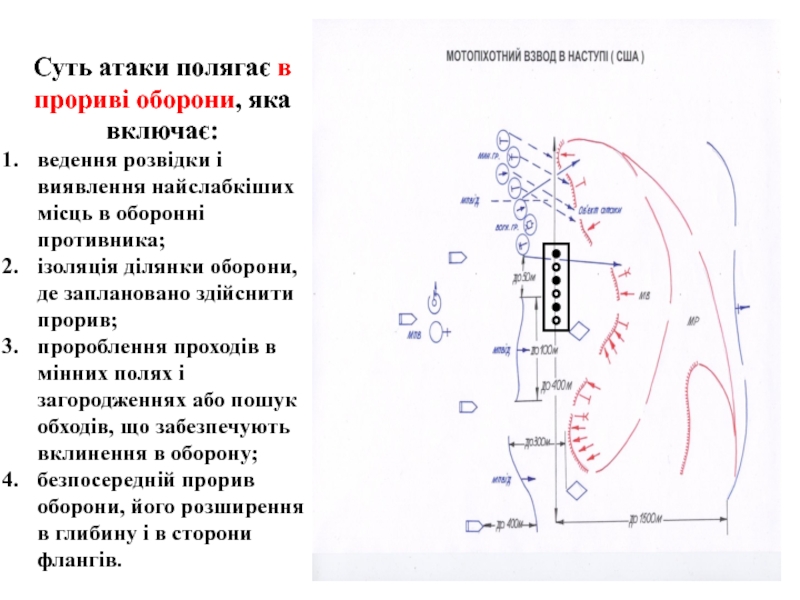 Суть атаки полягає в
прориві оборони, яка
включає:
1. ведення розвідки і
виявлення найслабкіших
місць в оборонні
противника;
2. ізоляція ділянки оборони,
де заплановано здійснити
прорив;
3. пророблення проходів в
мінних полях і
загородженнях або пошук
обходів, що забезпечують
вклинення в оборону;
4. безпосередній прорив
оборони, його розширення
в глибину і в сторони
флангів.
МОТОПІХОТНИЙ ВЗВОД В НАСТУПІ ( США )
ман.гр.
мпвід
Об'єкт атаки
вогн. гр.
до 50м
МВ
МПВ
МР
мпвід
до 100м
до 400м
до 300м
мпвід
до 400м
до 1500м